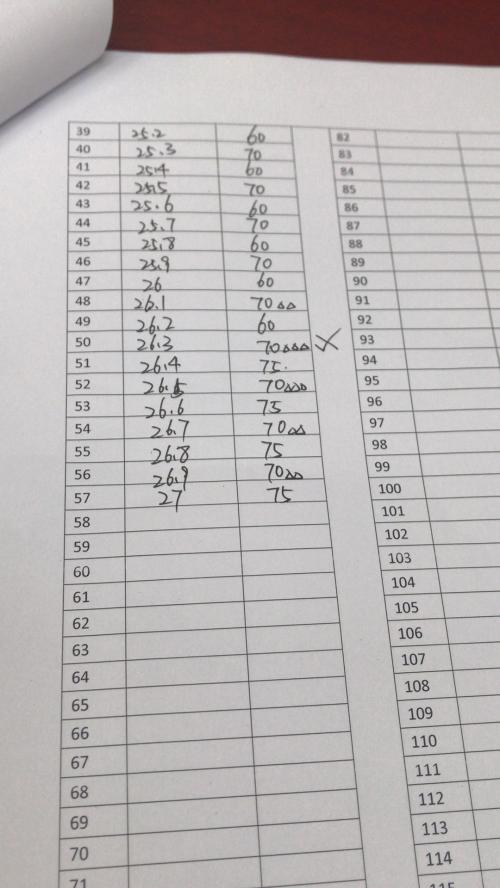 39 25.2 60 82
40 25.3 70 83
41 25.4 60 84
42 25.5 70 85
43 25.6 60 86
44 25.7 70 87
45 25.8 60 88
46 25.9 70 89
47 26 60 90
48 26.1 70△△ 91
49 26.2 60 92
50 26.3 70△△△ 93
51 26.4 75. 94
52 26.5 70△△△ 95
53 26.6 75 96
54 26.7 70△△ 97
55 26.8 75 98
56 26.9 70△△ 99
57 27 75 100
58 101
59 102
60 103
61 104
62 105
63 106
64 107
65 108
66 109
67 110
68 111
69 112
70 113
71 114
115